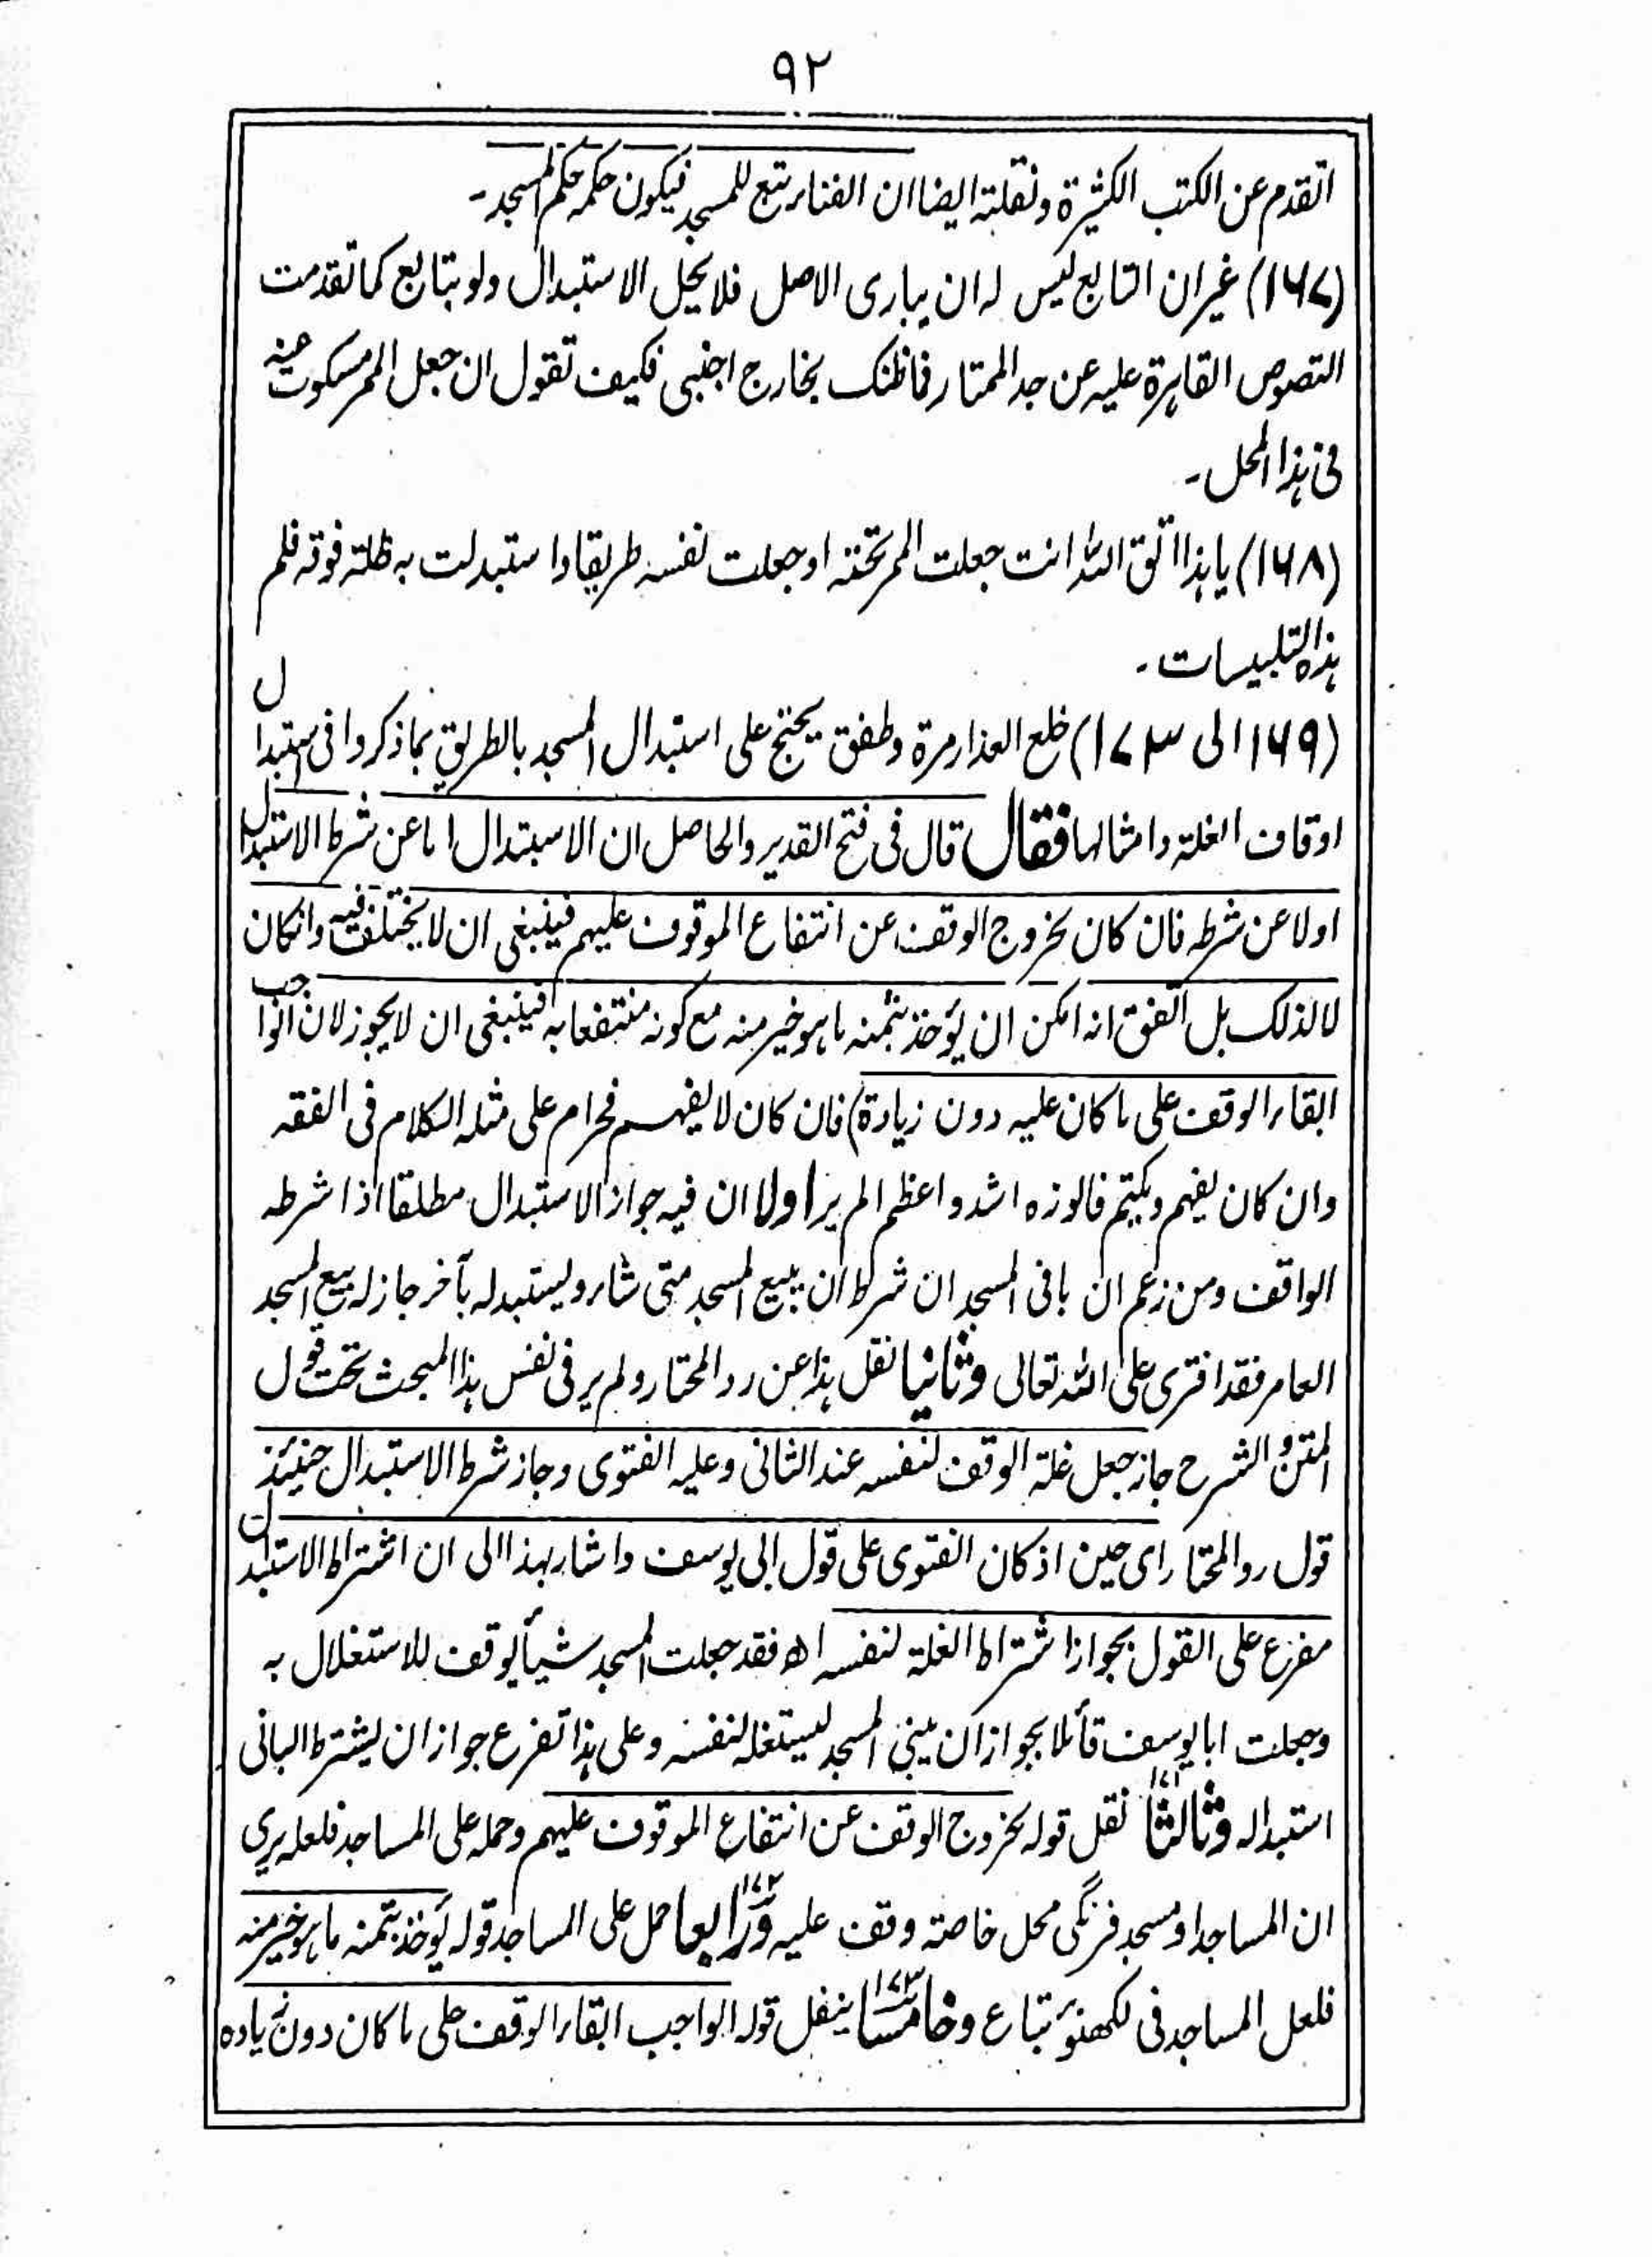 ۹۲
اتقدم عن الكتب الكثيرة ونقلته ايضا ان الفناء تبع للمسجد فيكون حكمه حكم المسجد۔
(۱۶۷) غير ان التابع ليس له ان يبارى الاصل فلا يحل الاستبدال ولو بتابع كما تقدمت
النصوص القاهرة عليه عن جد الممتار فما ظنك بخارج اجنبى فكيف تقول ان جعل الممر مسكوت عنه
فى هذا المحل۔
(۱۶۸) يا هذا اتق الله انت جعلت الممر تحته او جعلت نفسه طريقا واستبدلت به ظلة فوقه فلم
هذه التلبيسات۔
(۱۶۹ الى ۱۷۳) خلع العذار مرة وطفق يحتج على استبدال المسجد بالطريق بما ذكروا فى استبدال
اوقاف الغلة وامثالها فقال قال فى فتح القدير والحاصل ان الاستبدال اما عن شرط الاستبدال
اولا عن شرطه فان كان لخروج الوقف عن انتفاع الموقوف عليهم فينبغى ان لا يختلف فيه وانكان
لا لذلك بل اتفق انه امكن ان يؤخذ بثمنه ما هو خير منه مع كونه منتفعا به فينبغى ان لا يجوز لان الواجب
ابقاء الوقف على ما كان عليه دون زيادة) فان كان لا يفهم فحرام على مثله الكلام فى الفقه
وان كان يفهم ويكتم فالوزه اشد واعظم الم ير اولا ان فيه جواز الاستبدال مطلقا اذا شرطه
الواقف ومن زعم ان بانى المسجد ان شرط ان يبيع المسجد متى شاء ويستبدله بآخر جاز له بيع المسجد
العامر فقد افترى على الله تعالى وثانيا نقل هذا عن رد المحتار ولم ير فى نفس هذا المبحث تحت قول
المتن والشرح جاز جعل غلة الوقف لنفسه عند الثانى وعليه الفتوى وجاز شرط الاستبدال حينئذ
قول رد المحتار اى حين اذ كان الفتوى على قول ابى يوسف واشار بهذا الى ان اشتراط الاستبدال
مفرع على القول بجواز اشتراط الغلة لنفسه اھ فقد جعلت المسجد شيأ يوقف للاستغلال به
وجعلت ابا يوسف قائلا بجواز ان يبنى المسجد ليستغله لنفسه وعلى هذا تفرع جواز ان يشترط البانى
استبداله وثالثا ۱۷۱ نقل قوله لخروج الوقف عن انتفاع الموقوف عليهم وحمله على المساجد فلعله يرى
ان المساجد او مسجد فرنگى محل خاصة وقف عليه ورابعا ۱۷۲ حمل على المساجد قوله يؤخذ بثمنه ما هو خير منه
فلعل المساجد فى لكهنؤ تباع وخامسا ۱۷۳ ينقل قوله الواجب ابقاء الوقف على ما كان دون زيادة